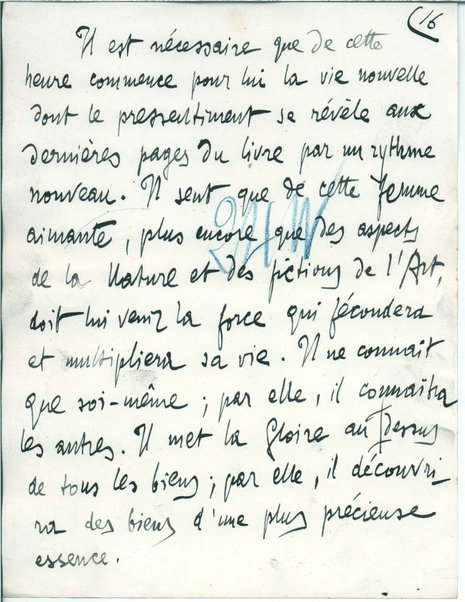 (16
Il est nécessaire que de cette
heure commence pour lui la vie nouvelle
dont le pressentiment se révèle aux
dernières pages du livre par un rythme
nouveau. Il sent que de cette femme
aimante, plus encore que des aspects
de la Nature et des fictions de l'Art,
doit lui venir la force qui fécondera
et multipliera sa vie. Il ne connait
que soi-même ; par elle, il connaîtra
les autres. Il met la Gloire au dessus
de tous les biens ; par elle, il découvri-
ra des biens d'une plus précieuse
essence.